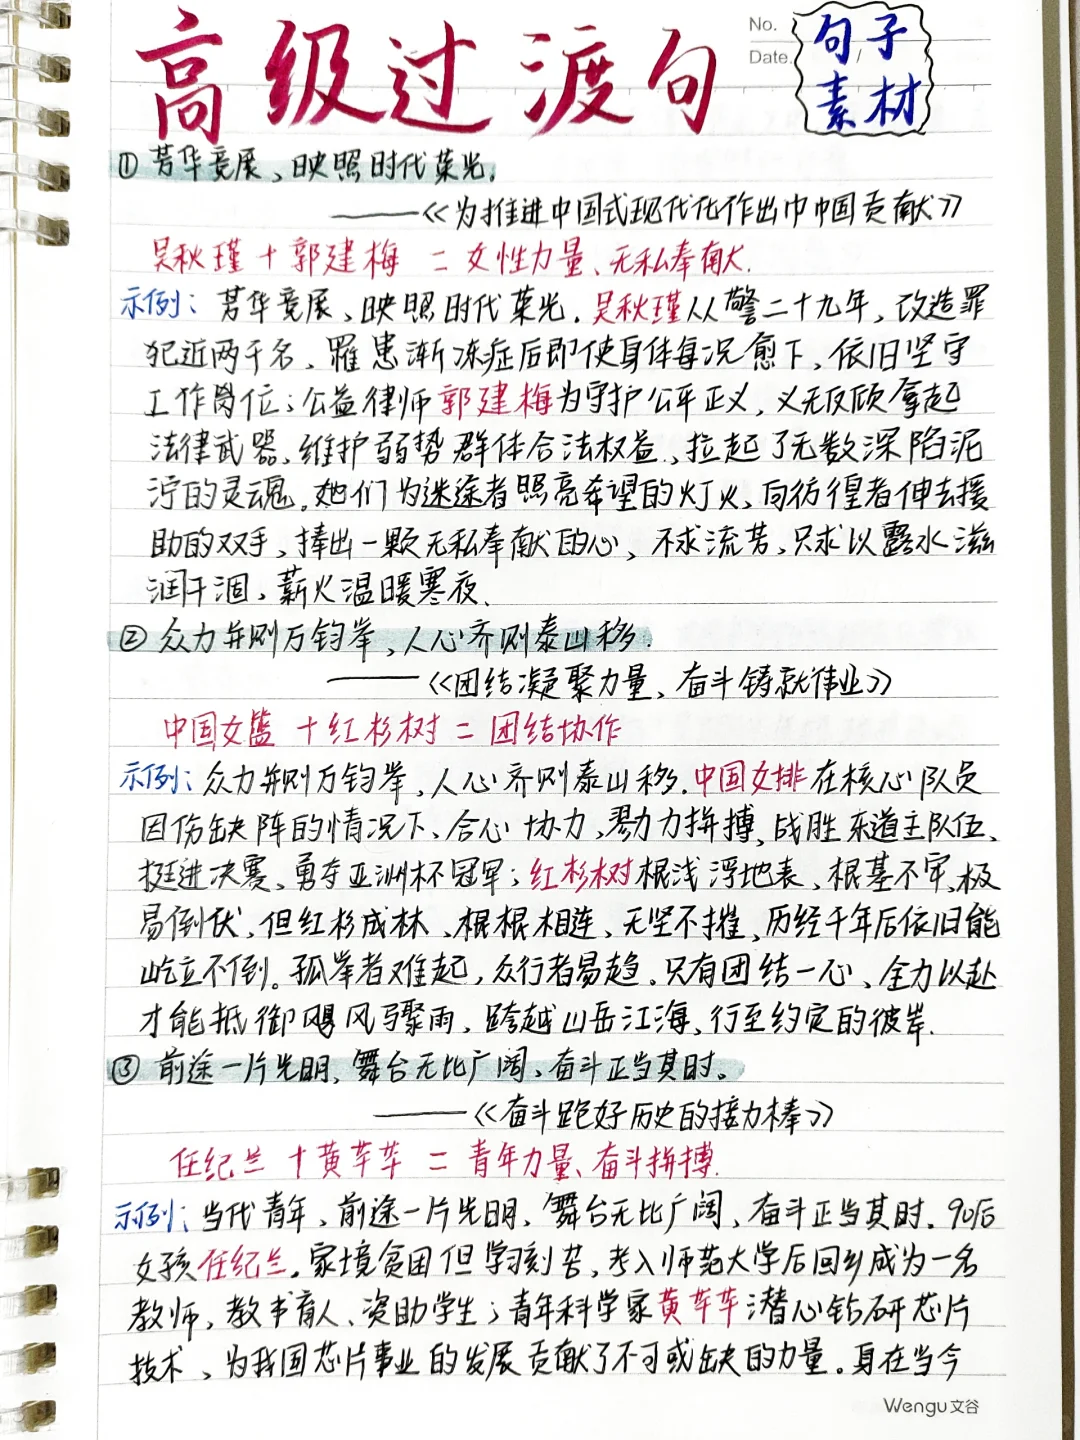 高级过渡句
No.
Date.
句子
素材
①芳华竞展、映照时代荣光。
——《为推进中国式现代化作出巾帼贡献》
吴秋瑾+郭建梅=女性力量、无私奉献.
示例:芳华竞展、映照时代荣光.吴秋瑾从警二十九年,改造罪
犯近两千名,罹患渐冻症后即使身体每况愈下,依旧坚守
工作岗位;公益律师郭建梅为守护公平正义,义无反顾拿起
法律武器,维护弱势群体合法权益,拉起了无数深陷泥
泞的灵魂。她们为迷途者照亮希望的灯火,向彷徨者伸去援
助的双手,捧出一颗无私奉献的心,不求流芳,只求以露水滋
润干涸,薪火温暖寒夜.
②众力并则万钧举,人心齐则泰山移.
——《团结凝聚力量,奋斗铸就伟业》
中国女篮+红杉树=团结协作
示例:众力并则万钧举,人心齐则泰山移.中国女排在核心队员
因伤缺阵的情况下,合心协力,勠力拼搏,战胜东道主队伍、
挺进决赛,勇夺亚洲杯冠军;红杉树根浅浮地表,根基不牢,极
易倒伏,但红杉成林,根根相连,无坚不摧,历经千年后依旧能
屹立不倒。孤举者难起,众行者易趋.只有团结一心、全力以赴
才能抵御飓风骤雨,跨越山岳江海,行至约定的彼岸.
③前途一片光明,舞台无比广阔,奋斗正当其时。
——《奋斗跑好历史的接力棒》
任纪兰+黄芊芊=青年力量、奋斗拼搏.
示例:当代青年,前途一片光明,舞台无比广阔,奋斗正当其时.90后
女孩任纪兰,家境贫困但学习刻苦,考入师范大学后回乡成为一名
教师,教书育人、资助学生;青年科学家黄芊芊潜心钻研芯片
技术,为我国芯片事业的发展贡献了不可或缺的力量。身在当今
Wengu文谷